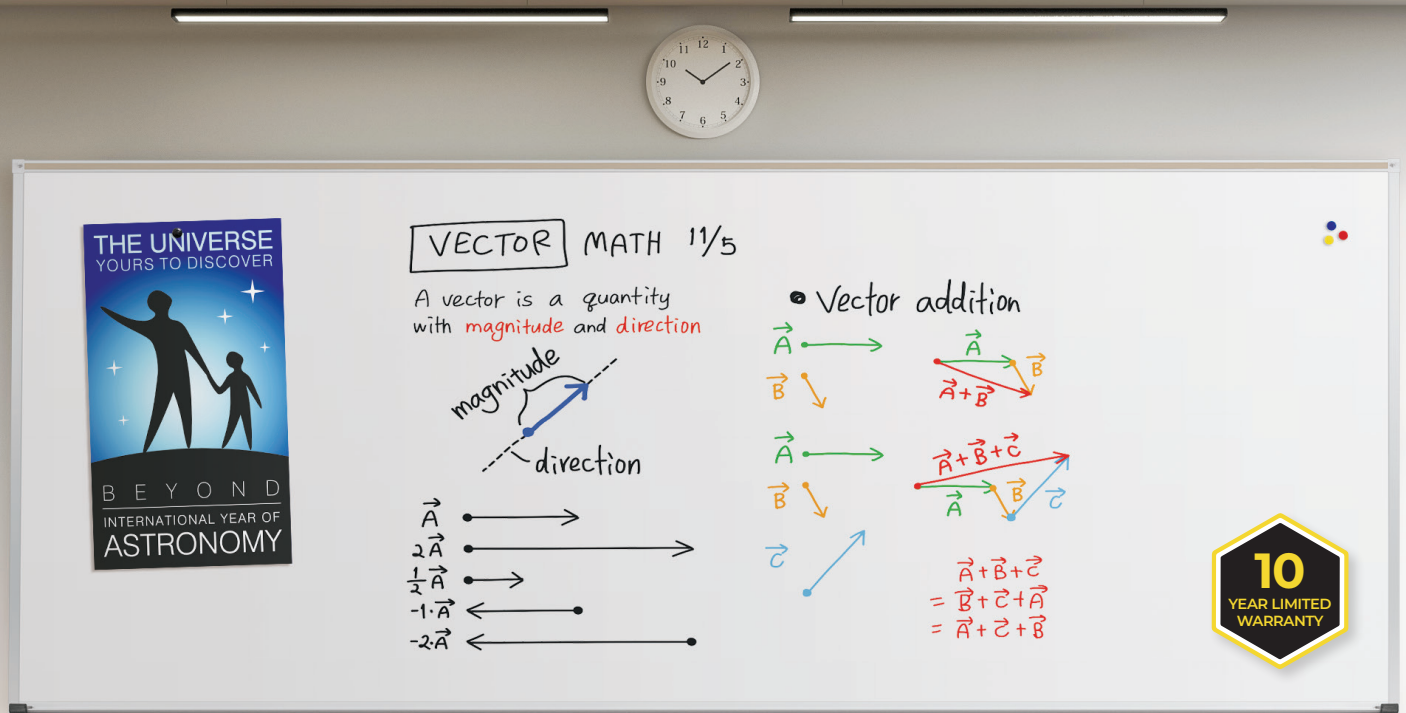 11 12 1
10 2
9 3
8 4
7 6 5
THE UNIVERSE
YOURS TO DISCOVER
BEYOND
INTERNATIONAL YEAR OF
ASTRONOMY
VECTOR MATH 11/5
A vector is a quantity
with magnitude and direction
magnitude
direction
A⃗
2A⃗
½A⃗
-1·A⃗
-2·A⃗
• Vector addition
A⃗
B⃗
A⃗
B⃗
A⃗+B⃗
A⃗
B⃗
C⃗
A⃗+B⃗+C⃗
A⃗
B⃗
C⃗
A⃗+B⃗+C⃗
= B⃗+C⃗+A⃗
= A⃗+C⃗+B⃗
10
YEAR LIMITED
WARRANTY